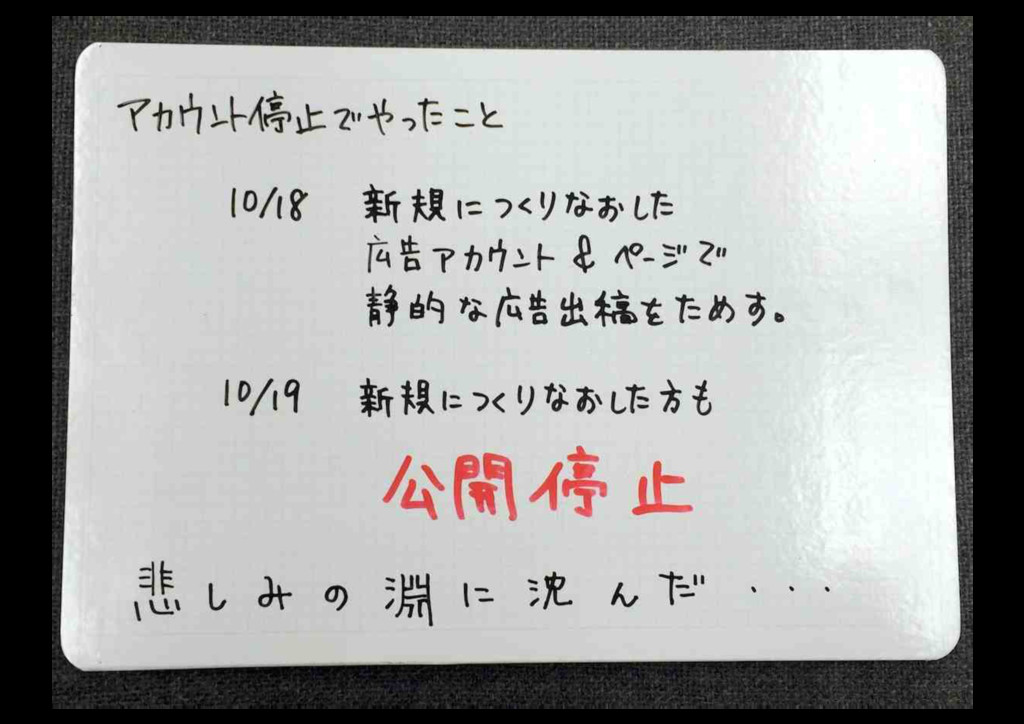 アカウント停止でやったこと
10/18 新規につくりなおした
広告アカウント & ページで
静的な広告出稿をためす。
10/19 新規につくりなおした方も
公開停止
悲しみの淵に沈んだ・・・